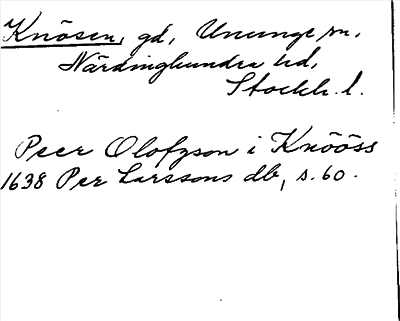 Knösen, gd, Ununge sn,
Närdinghundra hd,
Stockh. l.
Peer Olofzson i Knööss
1638 Per Larssons db, s. 60.